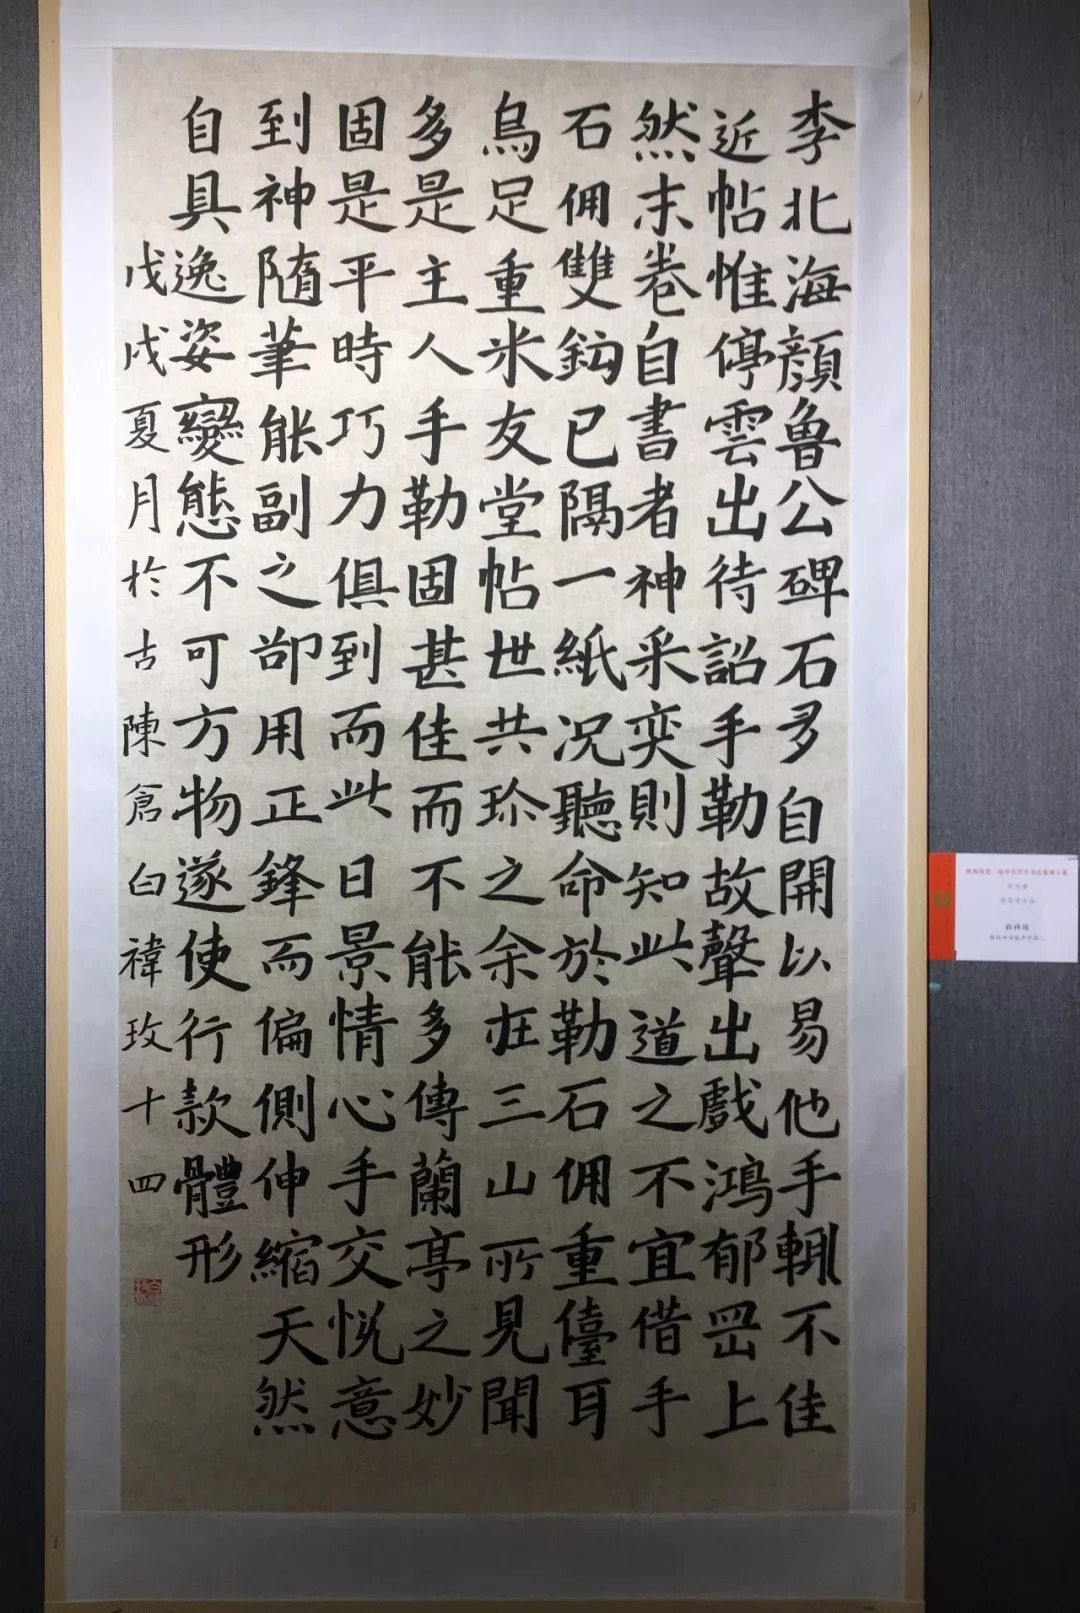 李北海顏魯公碑石多自開以易他手輒不佳
近帖惟停雲出待詔手勒故聲出戲鴻郁岡上
然末卷自書者神采奕則知此道之不宜借手
石佣雙鈎已隔一紙況聽命於勒石佣重儓耳
烏足重米友堂帖世共珎之余在三山所見聞
多是主人手勒固甚佳而不能多傳蘭亭之妙
固是平時巧力俱到而此日景情心手交悅意
到神隨筆能副之卻用正鋒而偏側伸縮天然
自具逸姿變態不可方物遂使行款體形
戊戌夏月於古陳倉白禕玫十四